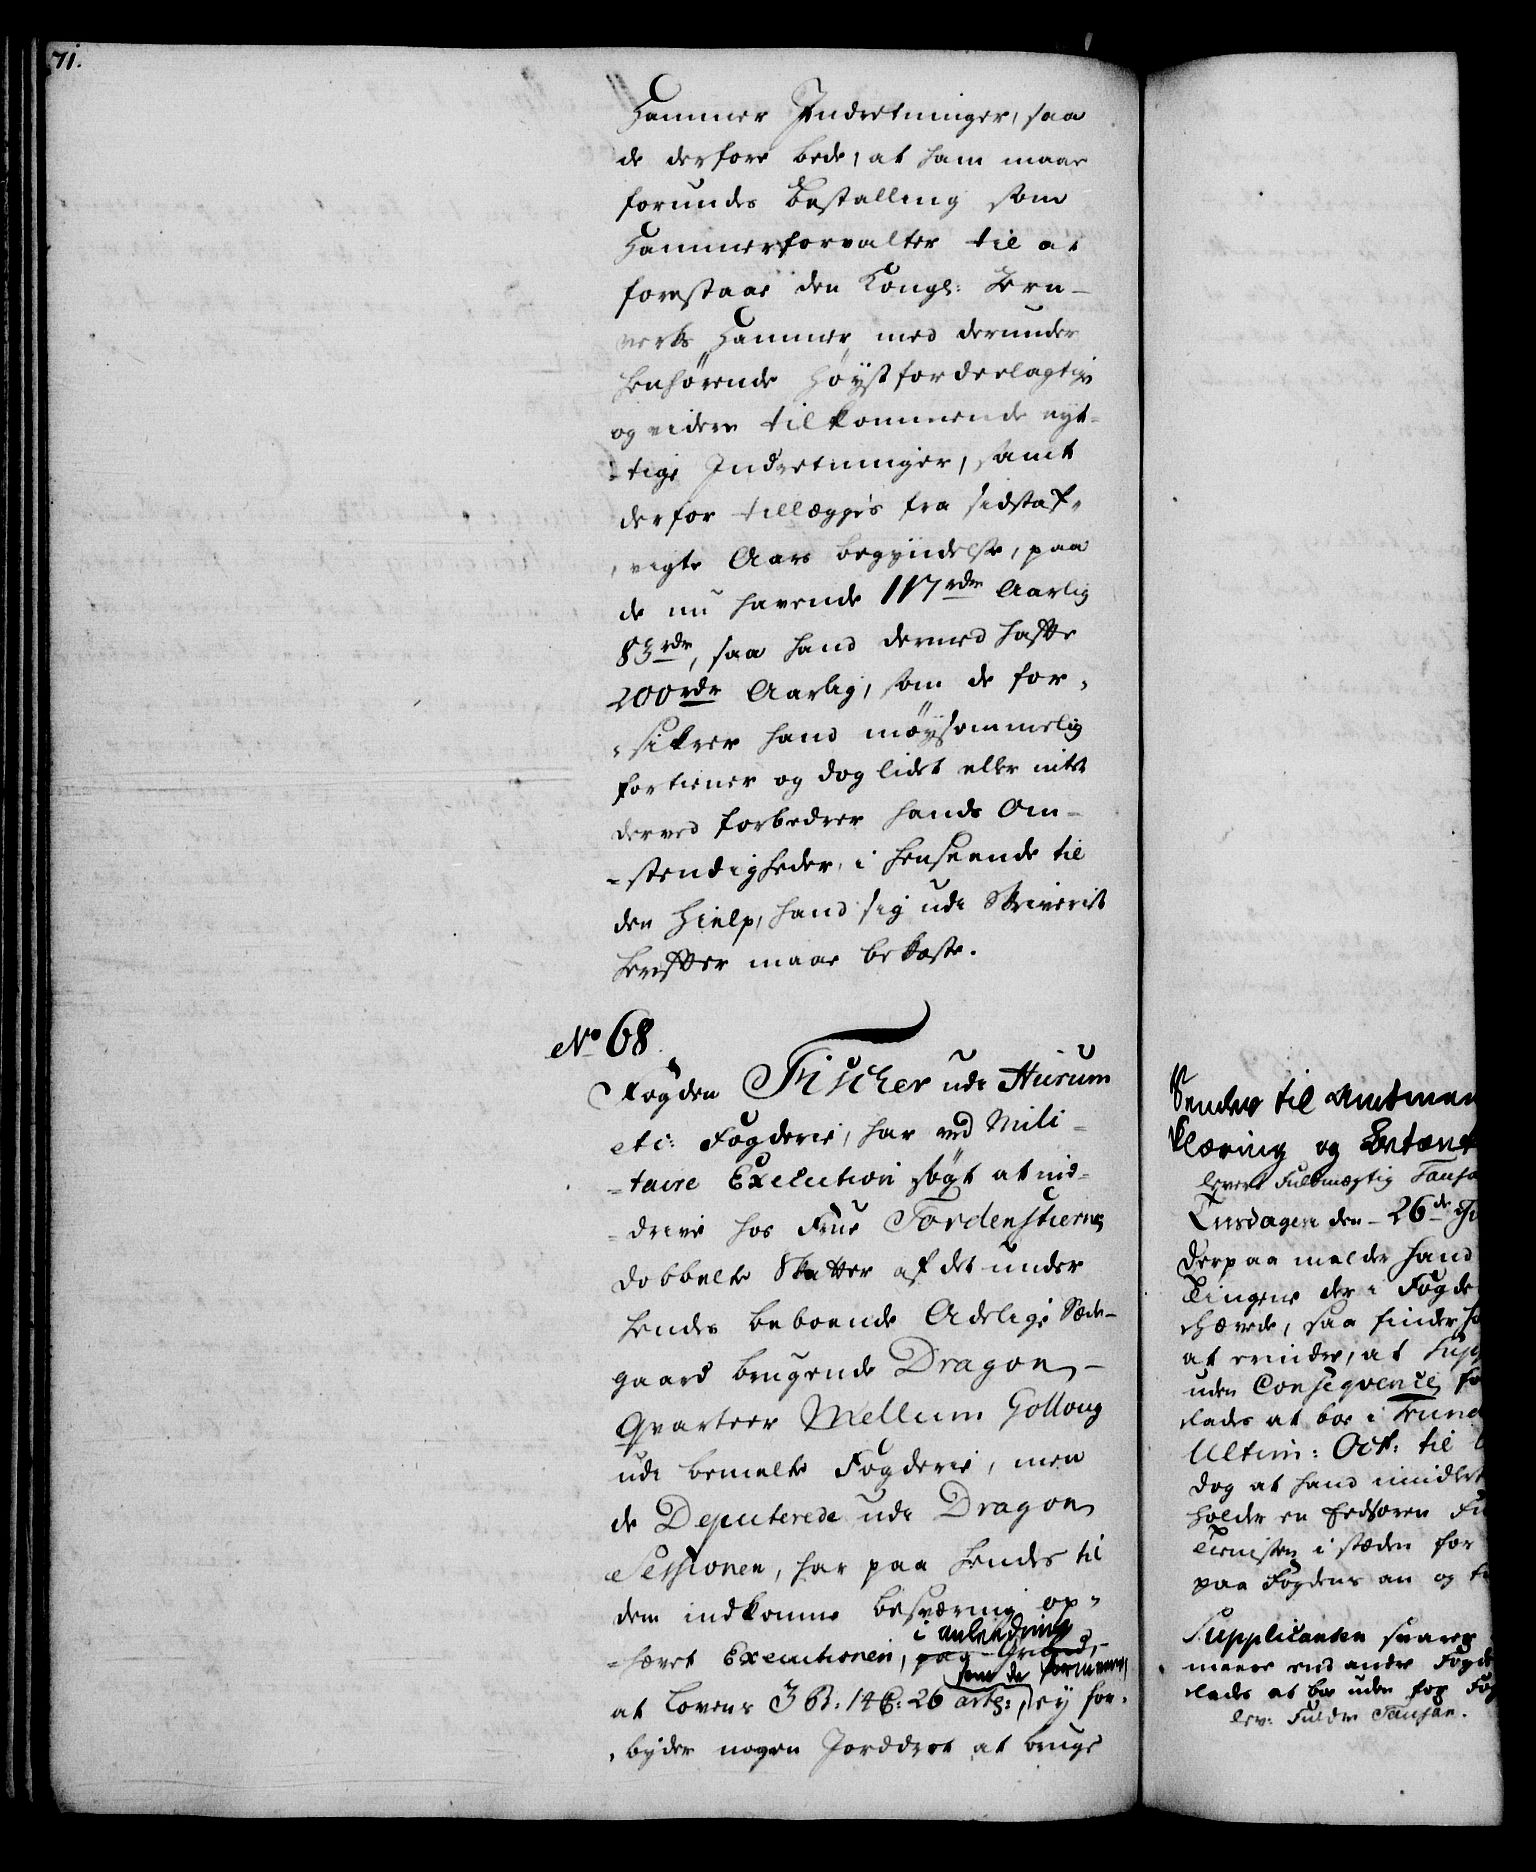 71.
Hammer Indretninger, saa
de derfore bede, at ham maae
forundes Bestalling som
Hammerforvalter til at
forestaae den Kongl: Jern-
verks Hammer, med derunder
henhørende høystfordeelagtige
og videre tilkommende nyt-
-tige Indretninger, samt
derfor tillægges fra sidstaf-
-vigte Aars begyndelse, paa
de nu havende 117 rdr Aarlig
83 rdr, saa hand dermed hafte
200 rdr Aarlig, som de for-
-sikrer hand møysommelig
fortiener og dog lidet eller intet
derved forbedrer hands Om-
-stendigheder, i henseende til
den Hielp, hand sig udi Skriverist
herefter maae bekoste.
No 68
Fogden Fischer udi Hurum
etc: Fogderie, har ved Mili-
-taire Execution søgt at ind-
-drive hos Frue Tordenstierne
dobbelte Skatter af det under
hendes beboende Adelige Sæde-
gaard brugende Dragon-
Qvarteer Mellum Gollaug
udi bemelte Fogderie, men
de Deputerede udi Dragon
Sessionen, har paa hendes til
dem indkomne besværing op-
-hævet Executionen, paa Grund,
i anledning
som de formener,
at Lovens 3 B: 14 C: 26 artl:, ey for-
-byder nogen Jorddrot at bruge
Sendes til Amtman
klæring og Betænk
leveret Fuldmægtig
Tirsdagen den 26de
Derpaa melder hand
Tingene der i Fogde
at erindre, at Supp
uden Conseqvence
-lades at boe i
Ultim: Oct: til
dog at hand imidlert
holder en Eedsoren Fu
Tienisten i stæden for
paa Fogdens an og
Supplicanten svarer
meere end andre Fogde
-lades at boe uden for Fog
lev: Fuldm